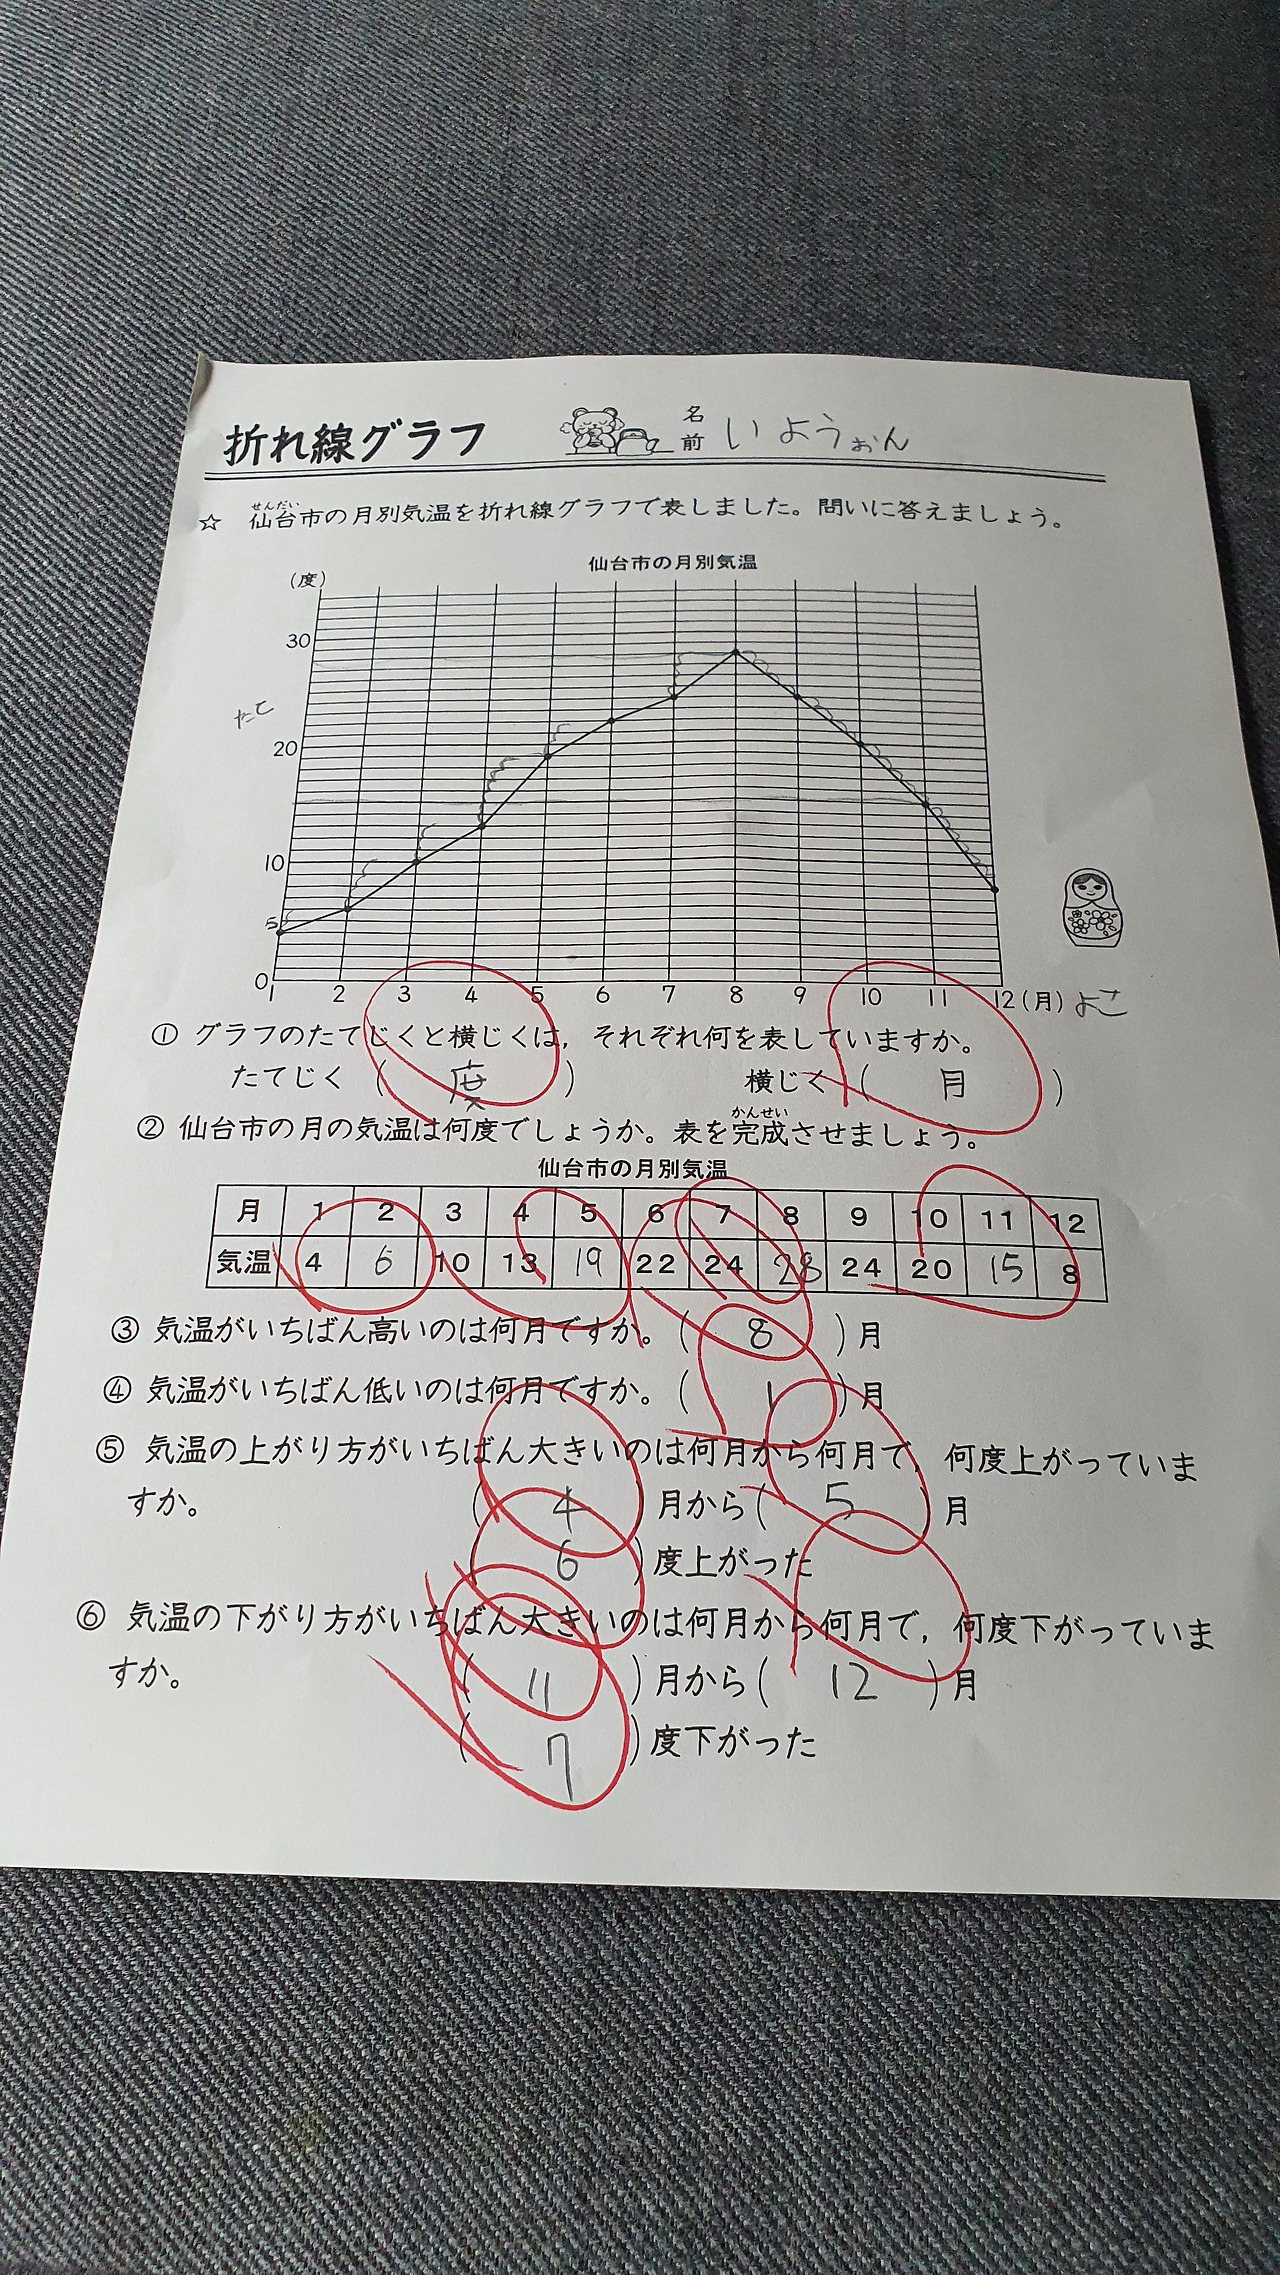 折れ線グラフ
名前 いようぉん
☆ 仙台市の月別気温を折れ線グラフで表しました。問いに答えましょう。
せんだい
仙台市の月別気温
(度)
30
たて
20
10
5
0
1 2 3 4 5 6 7 8 9 10 11 12 (月) よこ
① グラフのたてじくと横じくは，それぞれ何を表していますか。
たてじく ( 度 ) 横じく ( 月 )
かんせい
② 仙台市の月の気温は何度でしょうか。表を完成させましょう。
仙台市の月別気温
月 1 2 3 4 5 6 7 8 9 10 11 12
気温 4 6 10 13 19 22 24 28 24 20 15 8
③ 気温がいちばん高いのは何月ですか。( 8 )月
④ 気温がいちばん低いのは何月ですか。( 1 )月
⑤ 気温の上がり方がいちばん大きいのは何月から何月で，何度上がっていま
すか。 ( 4 )月から( 5 )月
( 6 )度上がった
⑥ 気温の下がり方がいちばん大きいのは何月から何月で，何度下がっていま
すか。 ( 11 )月から( 12 )月
( 7 )度下がった